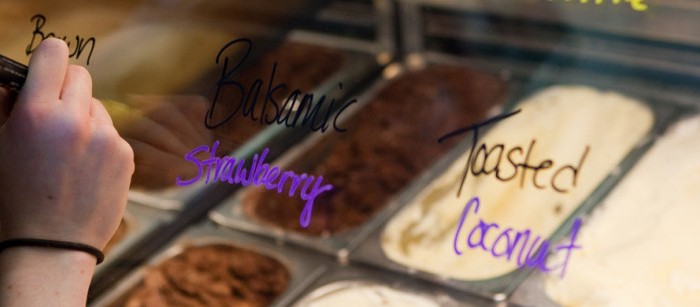 Balsamic
Strawberry
Toasted
Coconut